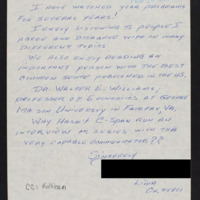 I HAVE WATCHED YOUR PROGRAMS
FOR SEVERAL YEARS!
I ENJOY LISTENING TO PEOPLE I
AGREE AND DISAGREE WITH ON MANY
DIFFERENT TOPICS
WE ALSO ENJOY READING AN
IMPORTANT PERSON WITH THE BEST
COMMON SENSE PUBLISHED IN THE US,
DR. WALTER E. WILLIAMS
PROFESSOR OF ECONOMICS AT GEORGE
MASON UNIVERSITY IN FAIRFAX VA,
WHY HASN'T C-SPAN RUN AN
INTERVIEW OR SERIES WITH THIS
VERY CAPABLE COMMUNICATOR??
SINCERELY
CA
CC: